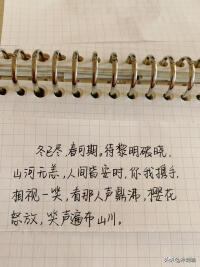 冬已尽,春可期。待黎明破晓,
山河无恙,人间皆安时,你我携手,
相视一笑,看那人声鼎沸,樱花
怒放,笑声遍布山川。